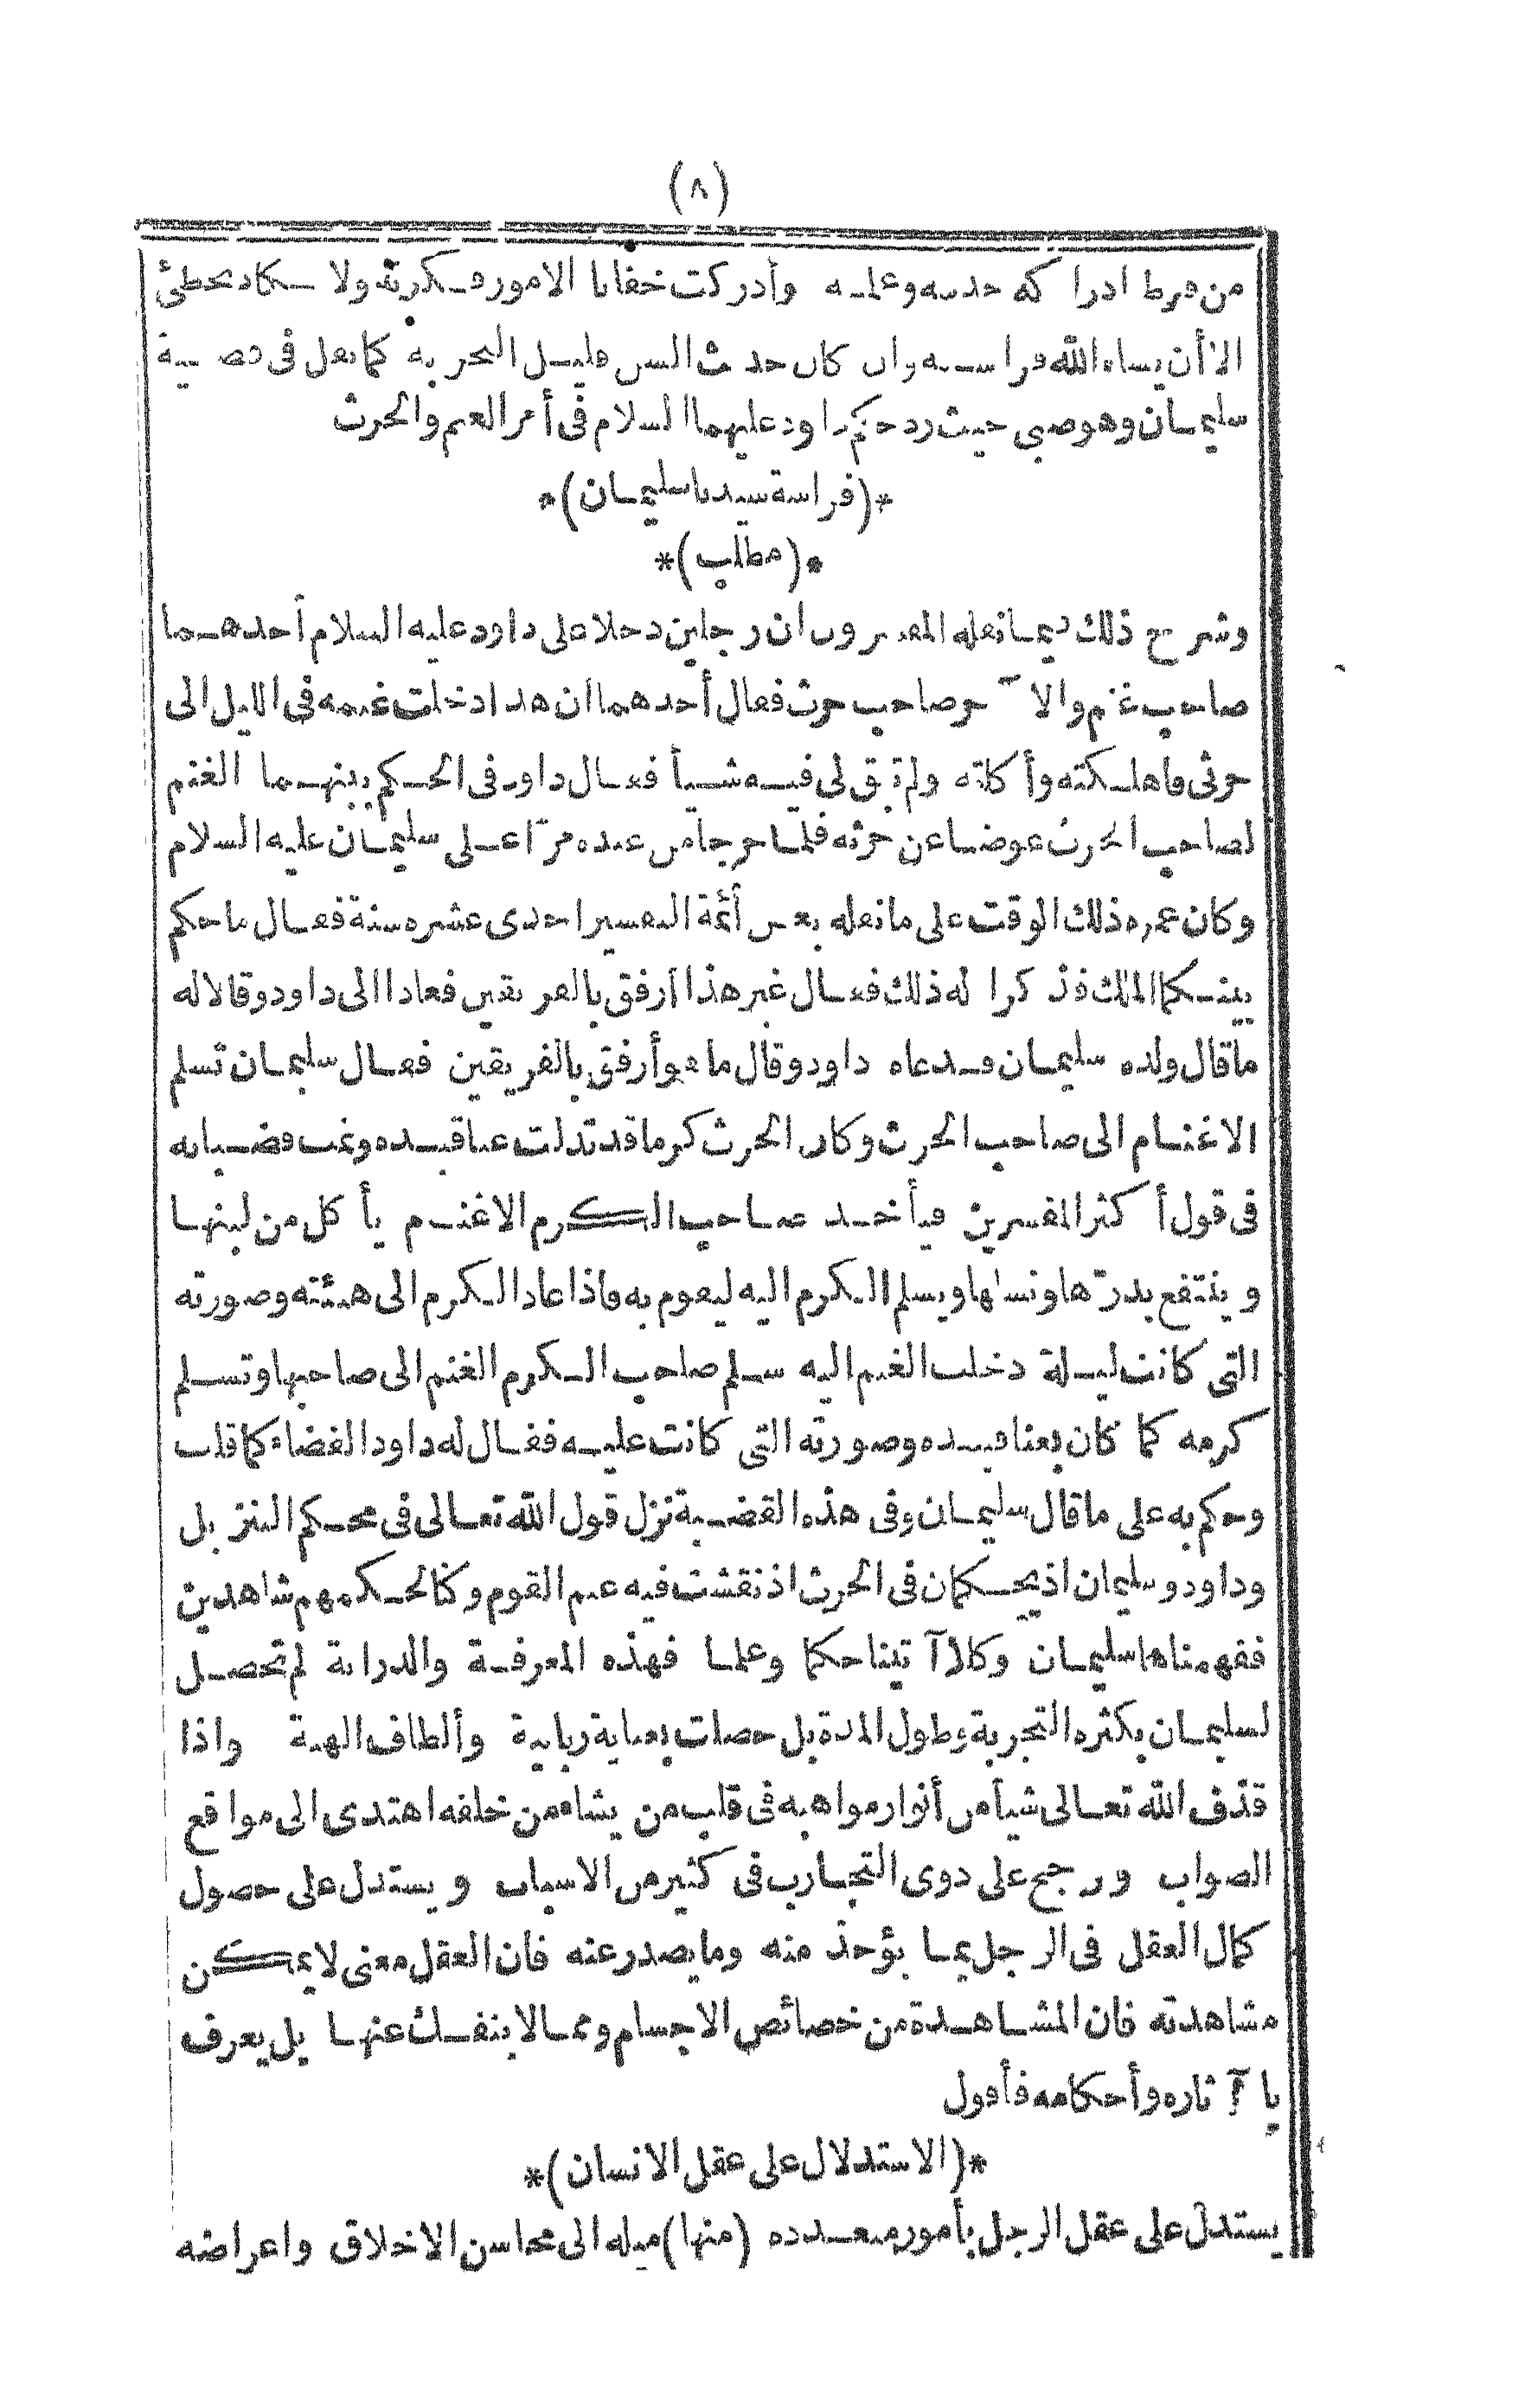 (٨)
من فرط ادراكه حدسه وعلمه وأدركت خفايا الامور فكرته ولا يكاد يخطئ
الا أن يشاء الله فراسته وان كان حدث السن قليل التجربة كما نقل فى قصية
سليمان وهو صبى حيث رد حكم داود عليهما السلام فى أمر الغنم والحرث
*(فراسة سيدنا سليمان)*
*(مطلب)*
وشرح ذلك فيما نقله المفسرون ان رجلين دخلا على داود عليه السلام أحدهما
صاحب غنم والآخر صاحب حرث فقال أحدهما ان هذا دخلت غنمه فى الليل الى
حرثى فاهلكته وأكلته ولم تبق لى فيه شيأ فقال داود فى الحكم بينهما الغنم
لصاحب الحرث عوضا عن حرثه فلما خرجا من عنده مرّا على سليمان عليه السلام
وكان عمره ذلك الوقت على ما نقله بعض أئمة التفسير احدى عشره سنة فقال ما حكم
بينكما الملك فذكرا له ذلك فقال غير هذا أرفق بالفريقين فعادا الى داود وقالا له
ما قال ولده سليمان فدعاه داود وقال ما هو أرفق بالفريقين فقال سليمان تسلم
الاغنام الى صاحب الحرث وكان الحرث كرما قد تدلت عناقيده ونمت قضبانه
فى قول أكثر المفسرين فيأخذ صاحب الكرم الاغنم يأكل من لبنها
وينتفع بدرّها ونسلها ويسلم الكرم اليه ليقوم به فاذا عاد الكرم الى هيئته وصورته
التى كانت ليلة دخلت الغنم اليه سلم صاحب الكرم الغنم الى صاحبها وتسلم
كرمه كما كان بعناقيده وصورته التى كانت عليه فقال له داود القضاء كما قلت
وحكم به على ما قال سليمان وفى هذه القضية نزل قول الله تعالى فى محكم التنزيل
وداود وسليمان اذ يحكمان فى الحرث اذ نفشت فيه غنم القوم وكنا لحكمهم شاهدين
ففهمناها سليمان وكلا آتينا حكما وعلما فهذه المعرفة والدراية لم تحصل
لسليمان بكثره التجربة وطول المدة بل حصلت بعناية ربانية وألطاف الهية واذا
قذف الله تعالى شيأ من أنوار مواهبه فى قلب من يشاء من خلقه اهتدى الى مواقع
الصواب ورجح على ذوى التجارب فى كثير من الاسباب ويستدل على حصول
كمال العقل فى الرجل بما يؤخذ منه وما يصدر عنه فان العقل معنى لا يمكن
مشاهدته فان المشاهدة من خصائص الاجسام ومما لا ينفك عنها بل يعرف
بآثاره وأحكامه فأقول
*(الاستدلال على عقل الانسان)*
يستدل على عقل الرجل بأمور متعدده (منها) ميله الى محاسن الاخلاق واعراضه